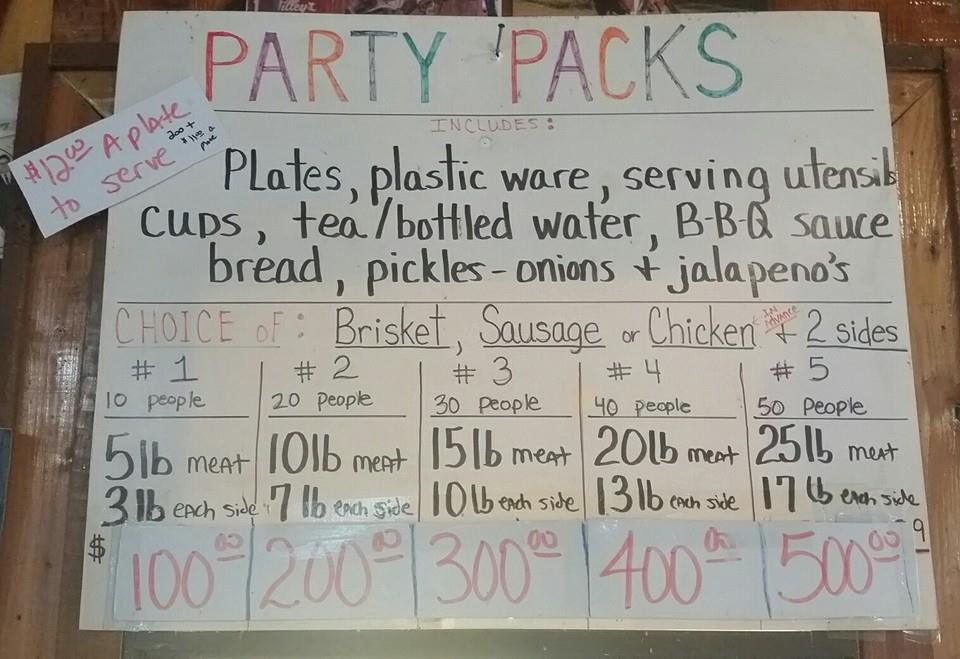 Tilley's
PARTY PACKS
$12.00 A plate
to serve
200 +
$11.00 a
INCLUDES:
PLates, plastic ware, serving utensils
cups, tea/bottled water, B-B-Q sauce
bread, pickles-onions + jalapeno's
CHOICE oF: Brisket, Sausage or Chicken + 2 sides
IN Advance
# 1 # 2 # 3 # 4 # 5
10 people 20 people 30 People 40 people 50 People
5lb meat 10lb meat 15lb meat 20lb meat 25lb meat
3lb each side 7 lb each side 10lb each side 13lb each side 17 lb each side
$ 100.00 200.00 300.00 400.00 500.00 9